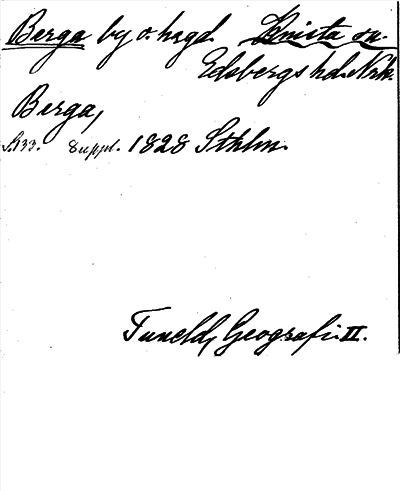 Berga by o. hsgd. Knista sn.
Edsbergs hd. Nrk.
Berga,
S. 133. Suppl. 1828 Sthlm.
Tuneld, Geografi. II.